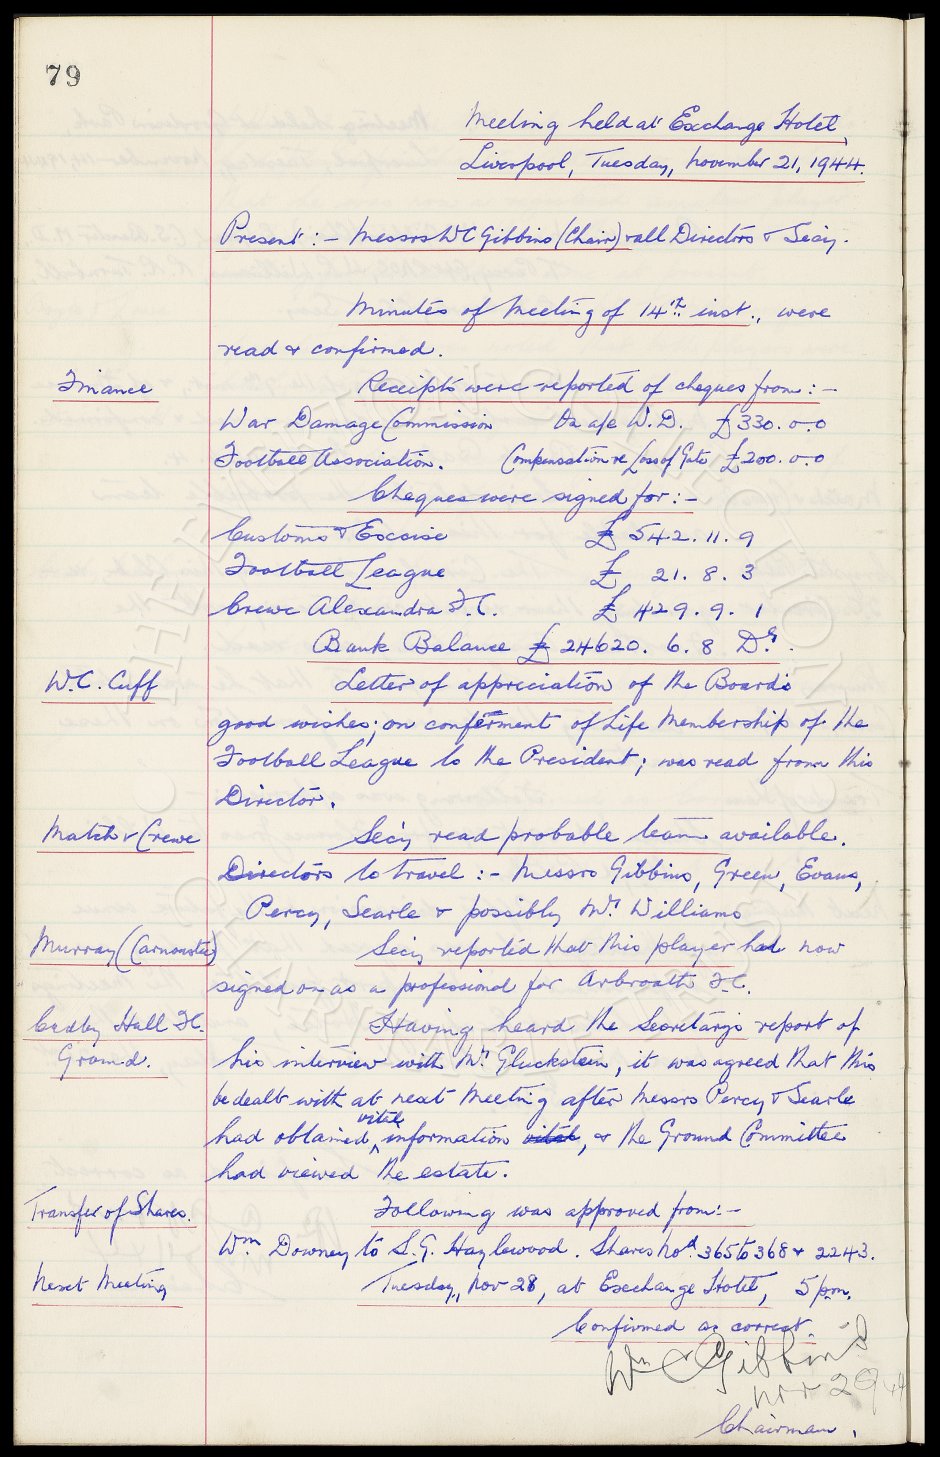 79
Meeting held at Exchange Hotel,
Liverpool, Tuesday, November 21, 1944.
Present :- Messrs WC Gibbins (Chair) & all Directors & Secy.
Minutes of Meeting of 14th inst., were
read & confirmed.
Finance Receipts were reported of cheques from :-
War Damage Commission On a/c W.D. £330. 0. 0
Football Association. Compensation re Loss of Gate £200. 0. 0
Cheques were signed for :-
Customs & Excise £ 542. 11. 9
Football League £ 21. 8. 3
Crewe Alexandra F.C. £ 429. 9. 1
Bank Balance £ 24620. 6. 8 Dr.
W.C. Cuff Letter of appreciation of the Board's
good wishes; on conferment of Life Membership of the
Football League to the President; was read from this
Director.
Match v Crewe Secy read probable team available.
Directors to travel :- Messrs Gibbins, Green, Evans,
Percy, Searle & possibly Mr Williams
Murray (Carnoustie) Secy reported that this player had now
signed on as a professional for Arbroath F.C.
Cadby Hall F.C. Having heard the Secretary's report of
Ground. his interview with Mr. Gluckstein, it was agreed that this
be dealt with at next Meeting after Messrs Percy & Searle
had obtained vital information vital, & the Ground Committee
had viewed the estate.
Transfer of Shares. Following was approved from :-
Wm Downey to S.G. Haylewood. Shares Nos. 365 to 368 & 2243.
Next Meeting Tuesday, Nov 28, at Exchange Hotel, 5 pm.
Confirmed as correct.
Wm C Gibbins
Nov 29 44
Chairman.